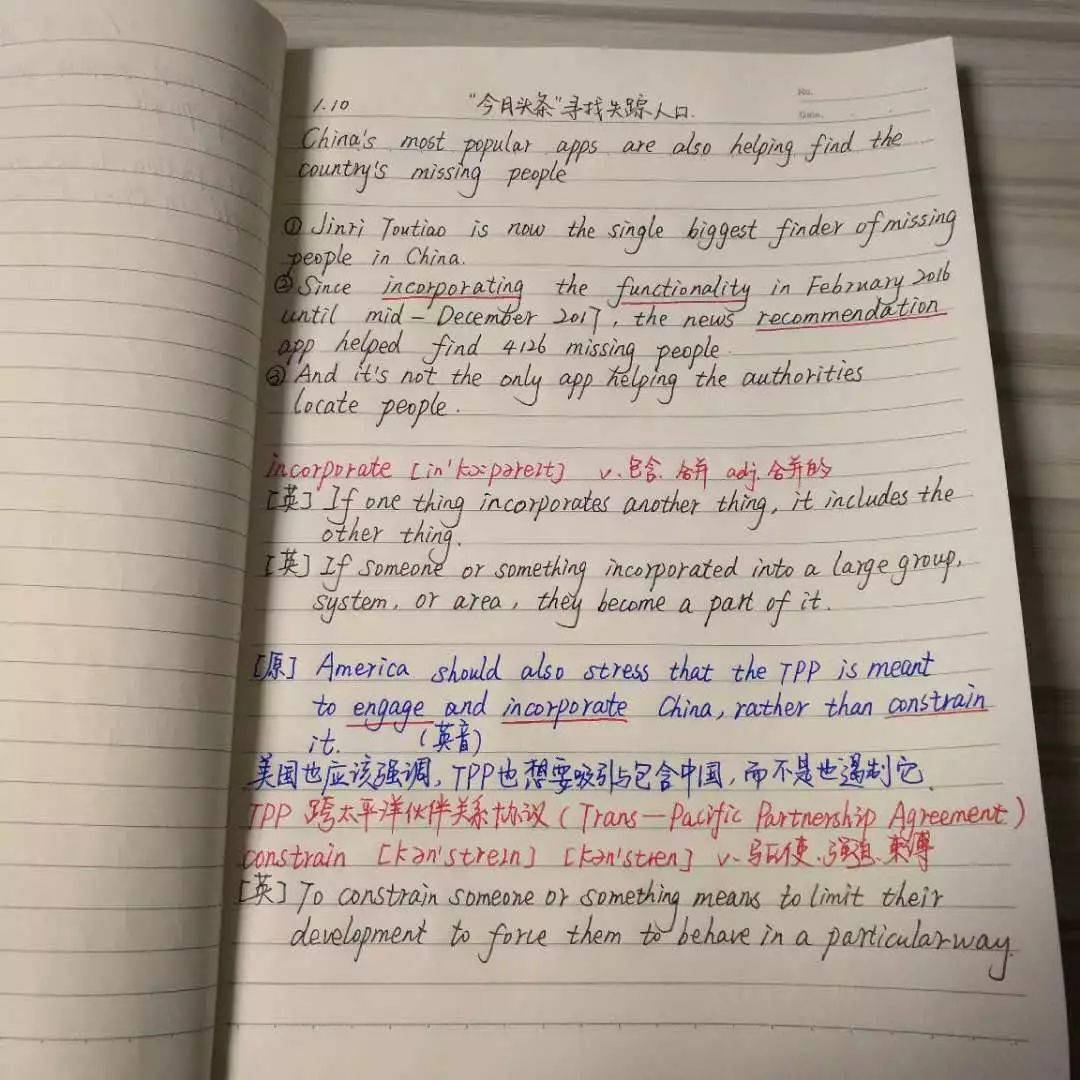 No.
1.10 "今日头条"寻找失踪人口.
Date.
China's most popular apps are also helping find the
country's missing people
① Jinri Toutiao is now the single biggest finder of missing
people in China.
② Since incorporating the functionality in February 2016
until mid-December 2017, the news recommendation
app helped find 4126 missing people.
③ And it's not the only app helping the authorities
locate people.
incorporate [in'kɔ:pəreɪt] v.包含.合并 adj.合并的
[英] If one thing incorporates another thing, it includes the
other thing.
[英] If someone or something incorporated into a large group,
system, or area, they become a part of it.
[原] America should also stress that the TPP is meant
to engage and incorporate China, rather than constrain
it. (英音)
美国也应该强调,TPP也想要吸引与包含中国,而不是也遏制它.
TPP 跨太平洋伙伴关系协议(Trans-Pacific Partnership Agreement)
constrain [kən'streɪn] [kən'stren] v.驱使.强迫.束缚
[英] To constrain someone or something means to limit their
development to force them to behave in a particular way.